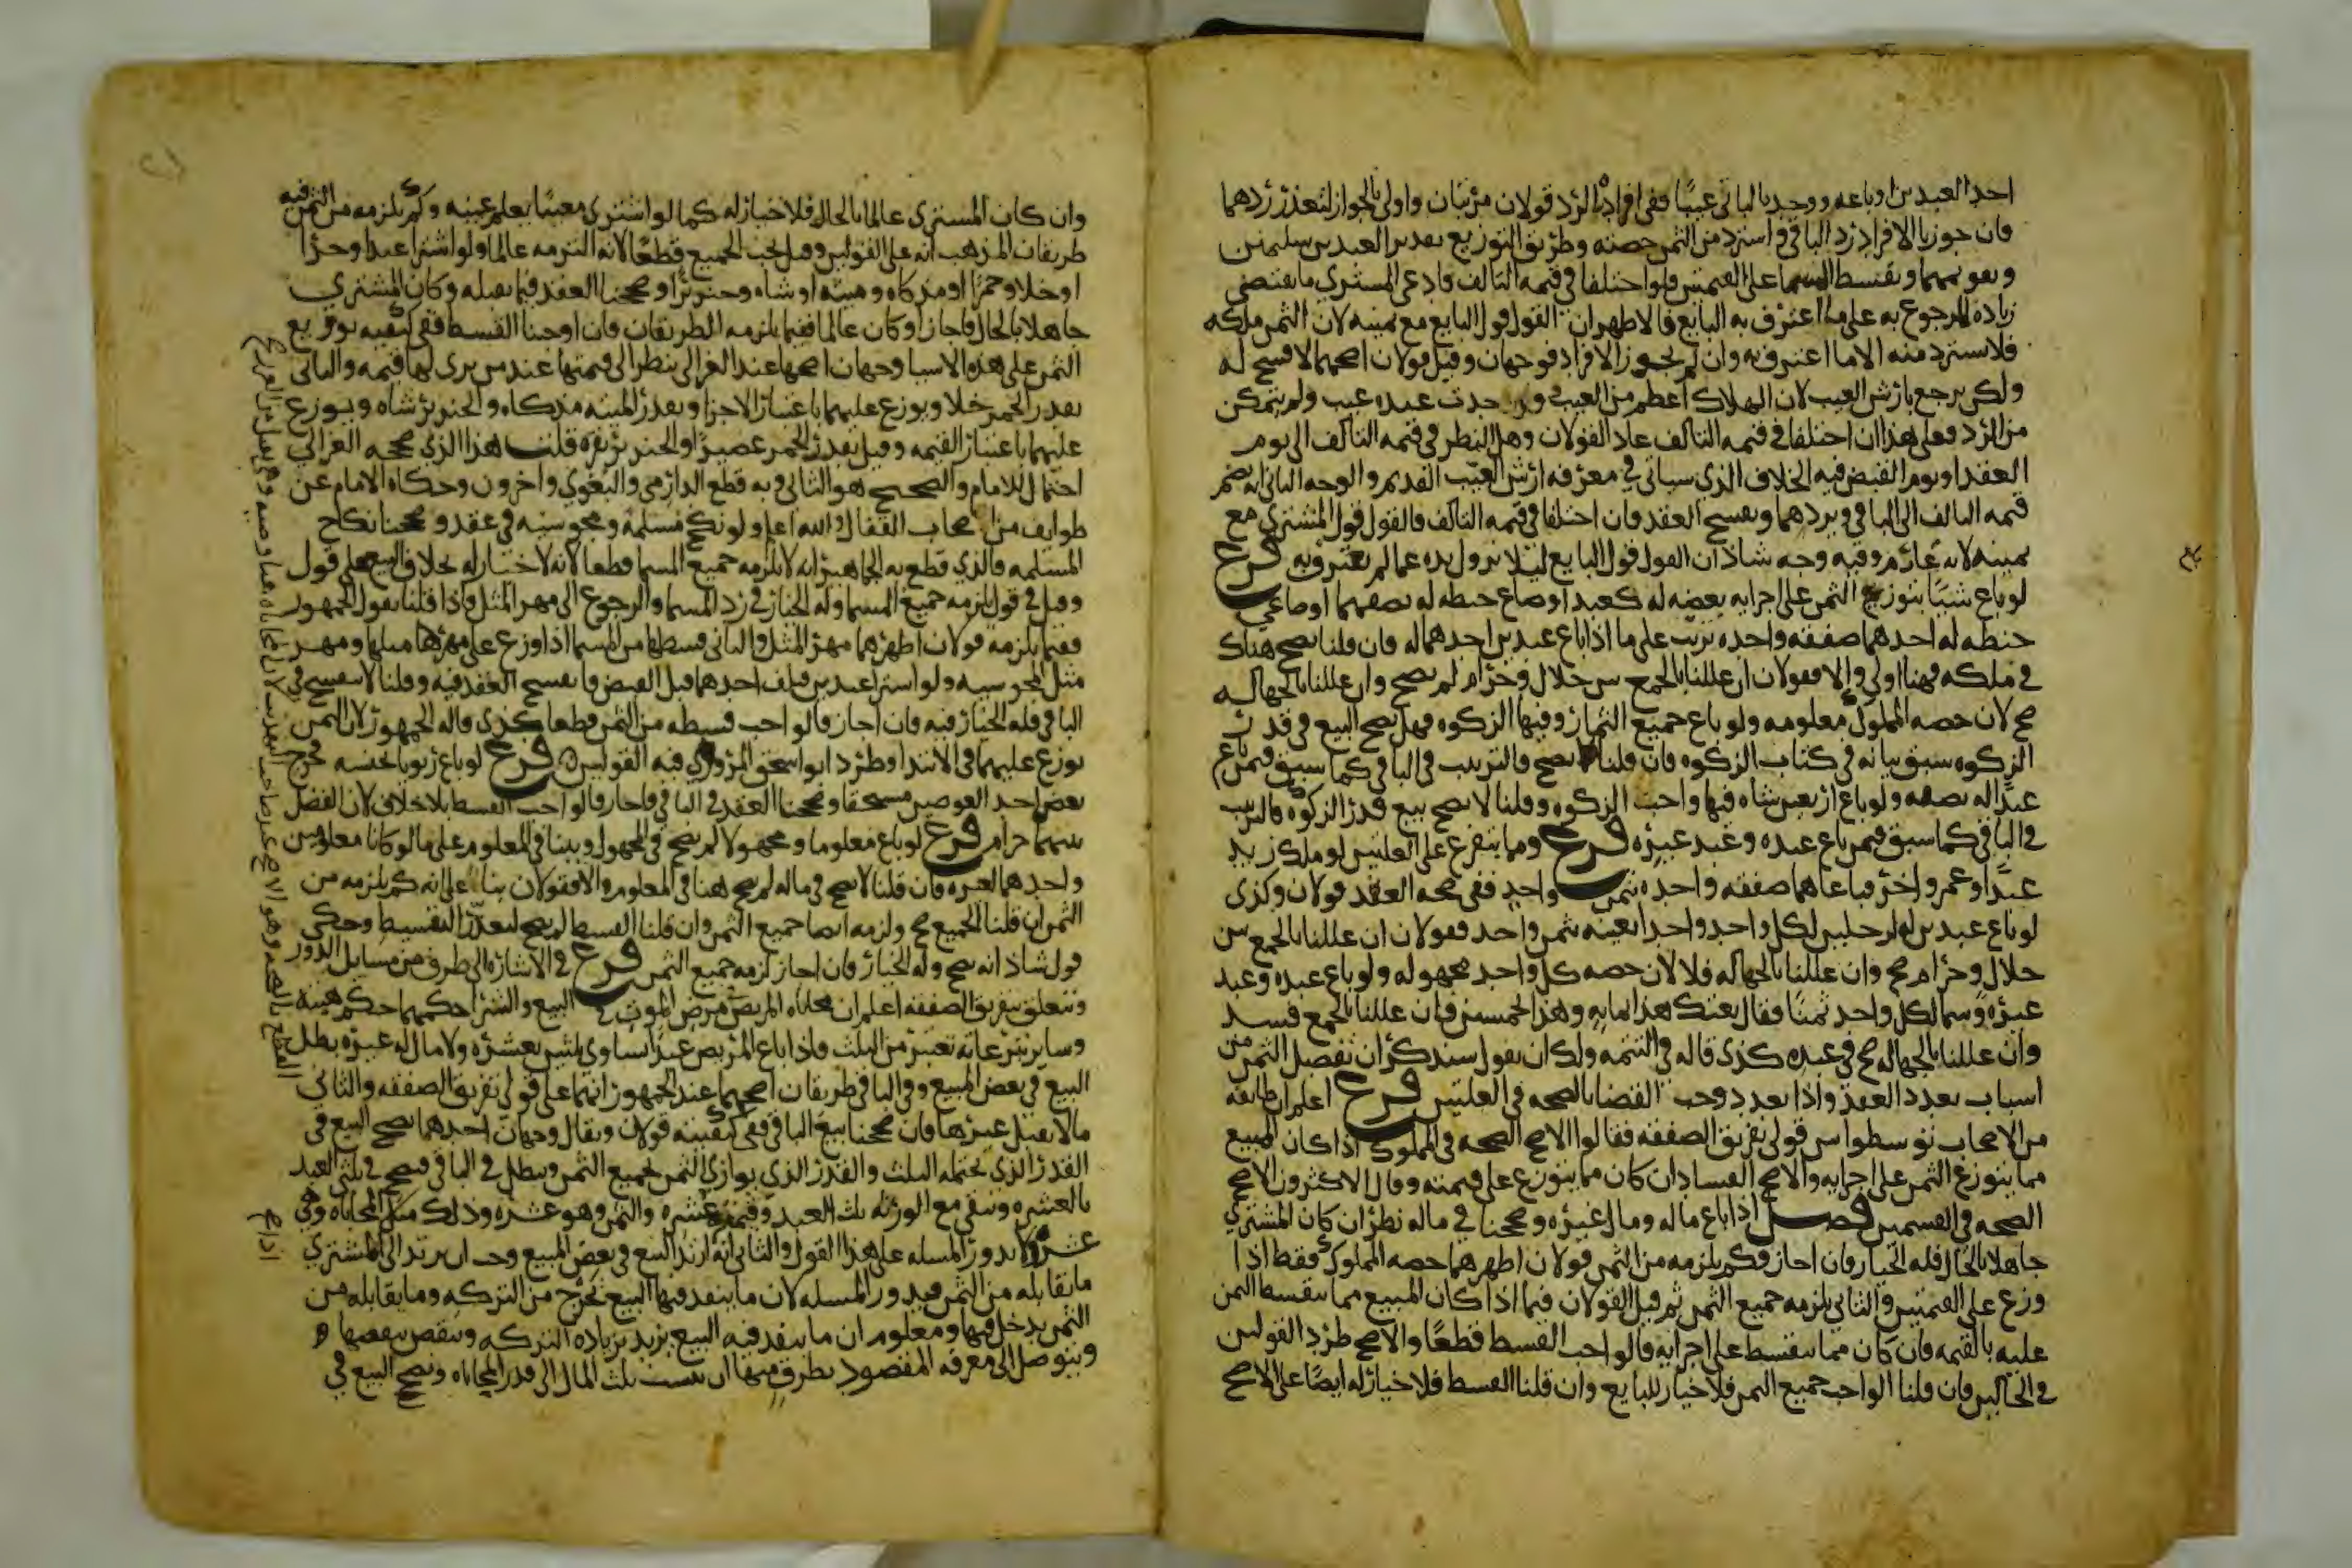 احد العبدين او باعه ووجد بالباقي عيبًا ففي افراده بالرد قولان مرتبان واولى بالجواز لتعذر ردهما
فان جوزنا الافراد رد الباقي واسترد من الثمن حصته وطريق التوزيع تقدير العبدين سليمين
وتقويمهما وتقسيط المسما على القيمتين فلو اختلفا في قيمة التالف فادعى المشتري ما يقتضي
زيادة المرجوع به على ما اعترف به البايع فالاظهر ان القول قول البايع مع يمينه لان الثمن ملكه
فلا يسترد منه الا ما اعترف به وان لم نجوز الافراد فوجهان وقيل قولان اصحهما لا فسخ له
ولكن يرجع بارش العيب لان الهلاك اعطم من العيب ولو حدث عنده عيب ولم يتمكن
من الرد فعلى هذا ان اختلفا في قيمة التالف عاد القولان وهل النظر في قيمة التالف الى يوم
العقد او يوم القبض فيه الخلاف الذي سياتي في معرفه ارش العيب القديم والوجه الثاني انه يضم
قيمه التالف الى الباقي ويردهما ويفسخ العقد فان اختلفا في قيمه التالف فالقول قول المشتري مع
يمينه لانه غارم وفيه وجه شاذ ان القول قول البايع ليلا تزول يده عما لم يعترف به فرع
لو باع شيًا يتوزع الثمن على اجزايه بعضه له كعبد او صاع حنطه له نصفهما او صاعي
حنطه له احدهما صفقه واحده ترتب على ما اذا باع عبدين احدهما له فان قلنا يصح هناك
في ملكه فهنا اولى والا فقولان ان عللنا بالجمع بين حلال وحرام لم يصح وان عللنا بالجهالـه
صح لان حصه المملوك معلومه ولو باع جميع الثمار وفيها الزكوه فهل يصح البيع في قدر
الزكوه سبق بيانه في كتاب الزكوه فان قلنا لا يصح فالترتيب في الباقي كما سبق فيمن باع
عبدًا له نصفه ولو باع اربعين شاه فيها واحب الزكوه وقلنا لا يصح بيع قدر الزكوه فالترتيب
في الباقي كما سبق فيمن باع عبده وعبد غيره فرع ومما يتفرع على العلتين لو ملك زيد
عبدًا وعمرو اخر فباعاهما صفقه واحده بثمن واحد ففي صحه العقد قولان وكذى
لو باع عبدين له لرجلين لكل واحد واحدا بعينه بثمن واحد فقولان ان عللنا بالجمع بين
حلال وحرام صح وان عللنا بالجهاله فلا لان حصه كل واحد مجهوله ولو باع عبده وعبد
غيره وسما لكل واحد ثمنًا فقال بعتك هذا بمايه وهذا بخمسين فان عللنا بالجمع فسـد
وان عللنا بالجهاله صح في عبده كذى قاله في التتمه ولك ان تقول سنذكر ان تفصيل الثمن من
اسباب تعدد العقد واذا تعدد وجب القضا بالصحه في العلتين فرع اعلم ان طايفه
من الاصحاب توسطوا بين قولي تفريق الصفقه فقالوا الاصح الصحه في المملوك اذا كان المبيع
مما يتوزع الثمن على اجزايه والاصح الفساد ان كان مما يتوزع على قيمته وقال الاكثرون الاصح
الصحه في القسمين فصــل اذا باع ماله ومال غيره وصححنا في ماله نظر ان كان المشتري
جاهلا بالحال فله الخيار فان اجاز فكم يلزمه من الثمن قولان اظهرهما حصه المملوك فقط اذا
وزع على القيمتين والثاني يلزمه جميع الثمن ثم قيل القولان فيما اذا كان المبيع مما يتقسط الثمن
عليه بالقيمه فان كان مما يتقسط على اجزايه فالواجب القسط قطعًا والاصح طرد القولين
في الحالين فان قلنا الواجب جميع الثمن فلا خيار للبايع وان قلنا القسط فلا خيار له ايضًا على الاصح
وان كان المشتري عالما بالحال فلا خيار له كما لو اشترى معيبًا يعلم عيبه وكم يلزمه من الثمن فيه
طريقان المذهب انه على القولين وقيل يجب الجميع قطعًا لانه التزمه عالما ولو اشترا عبدا وحرًا
او خلا وخمرًا او مذكاه وميته او شاه وخنزيرًا وصححنا العقد فيما يقبله وكان المشتري
جاهلا بالحال فاجاز او كان عالما ففيما يلزمه الطريقان فان اوجبنا القسط ففي كيفيه توزيع
الثمن على هذه الاشيا وجهان اصحها عند الغزالي ينظر الى قيمتها عند من يرى لها قيمه والثاني
يقدر الخمر خلا ويوزع عليهما باعتبار الاجزا ويقدر الميته مذكاه والخنزير شاه ويوزع
عليهما باعتبار القيمه وقيل يقدر الخمر عصيرًا والخنزير بقره قلت هذا الذي صححه الغزالي
احتمال للامام والصحيح هو الثاني وبه قطع الدارمي والبغوي واخرون وحكاه الامام عن
طوايف من اصحاب القفال والله اعلم ولو نكح مسلمة ومجوسيه في عقد وصححنا نكاح
المسلمه فالذي قطع به الجماهير انه لا يلزمه جميع المسما قطعا لانه لا خيار له بخلاف البيع على قول
وقيل في قول يلزمه جميع المسما وله الخيار في رد المسما والرجوع الى مهر المثل واذا قلنا بقول الجمهور
ففيما يلزمه قولان اظهرهما مهر المثل والثاني قسطها من المسما اذا وزع على مهرها مثلها ومهـر
مثل المجوسيه ولو اشترا عبدين فتلف احدهما قبل القبض فانفسح العقد فيه وقلنا لا ينفسح في
الباقي فله الخيار فيه فان اجاز فالواجب قسطه من الثمن قطعا كذى قاله الجمهور لان الثمن
توزع عليهما في الابتدا وطرد ابو اسحق المروزي فيه القولين ه فرع لو باع ربويا بجنسه فخرج
بعض احد العوضين مستحقا وصححنا العقد في الباقي فاجاز فالواجب القسط بلا خلاف لان الفضل
بينهما حرام فرع لو باع معلوما ومجهولا لم يصح في المجهول وبينا في المعلوم على ما لو كانا معلومين
واحدهما لغيره فان قلنا لا يصح في ماله لم يصح هنا في المعلوم والا فقولان بنا على انه كم يلزمه من
الثمن ان قلنا الجميع صح ولزمه ايضا جميع الثمن وان قلنا القسط لم يصح لتعذر التقسيط وحكي
قول شاذ انه يصح وله الخيار فان اجاز لزمه جميع الثمن فرع في الاشاره الى طرف من مسايل الدور
وتتعلق بتفريق الصفقه اعلم ان محاباه المريض مرض الموت في البيع والشرا حكمهما حكم هبته
وساير تبرعاته تعتبر من الثلث فاذا باع المريض عبدًا يساوي ثلثين بعشره ولا مال له غيره بطل
البيع في بعض المبيع وفي الباقي طريقان اصحهما عند الجمهور انها على قولي تفريق الصفقه والثاني
فان صححنا بيع الباقي ففي كيفيته قولان ويقال وجهان احدهما يصح البيع في
القدر الذي يحتمله الثلث والقدر الذي يوازي الثمن بجميع الثمن ويبطل في الباقي فيصح في ثلثي العبد
بالعشره ويبقى مع الورثه ثلث العبد وقيمته عشره والثمن وهو عشره وذلك مثل المحاباه وهي
عشره ولا يدور المسله على هذا القول والثاني انه ارتد البيع في بعض المبيع وجب ان يرتد الى المشتري
ما يقابله من الثمن فيدور المسله لان ما ينفد فيه البيع يخرج من التركه وما يقابله من
الثمن يدخل فيها ومعلوم ان ما ينفد فيه البيع يزيد بزياده التركه وينقص بنقصها ه
ويتوصل الى معرفه المقصود بطرق منها ان ينسب ثلث المال الى قدر المحاباه ويصح البيع في